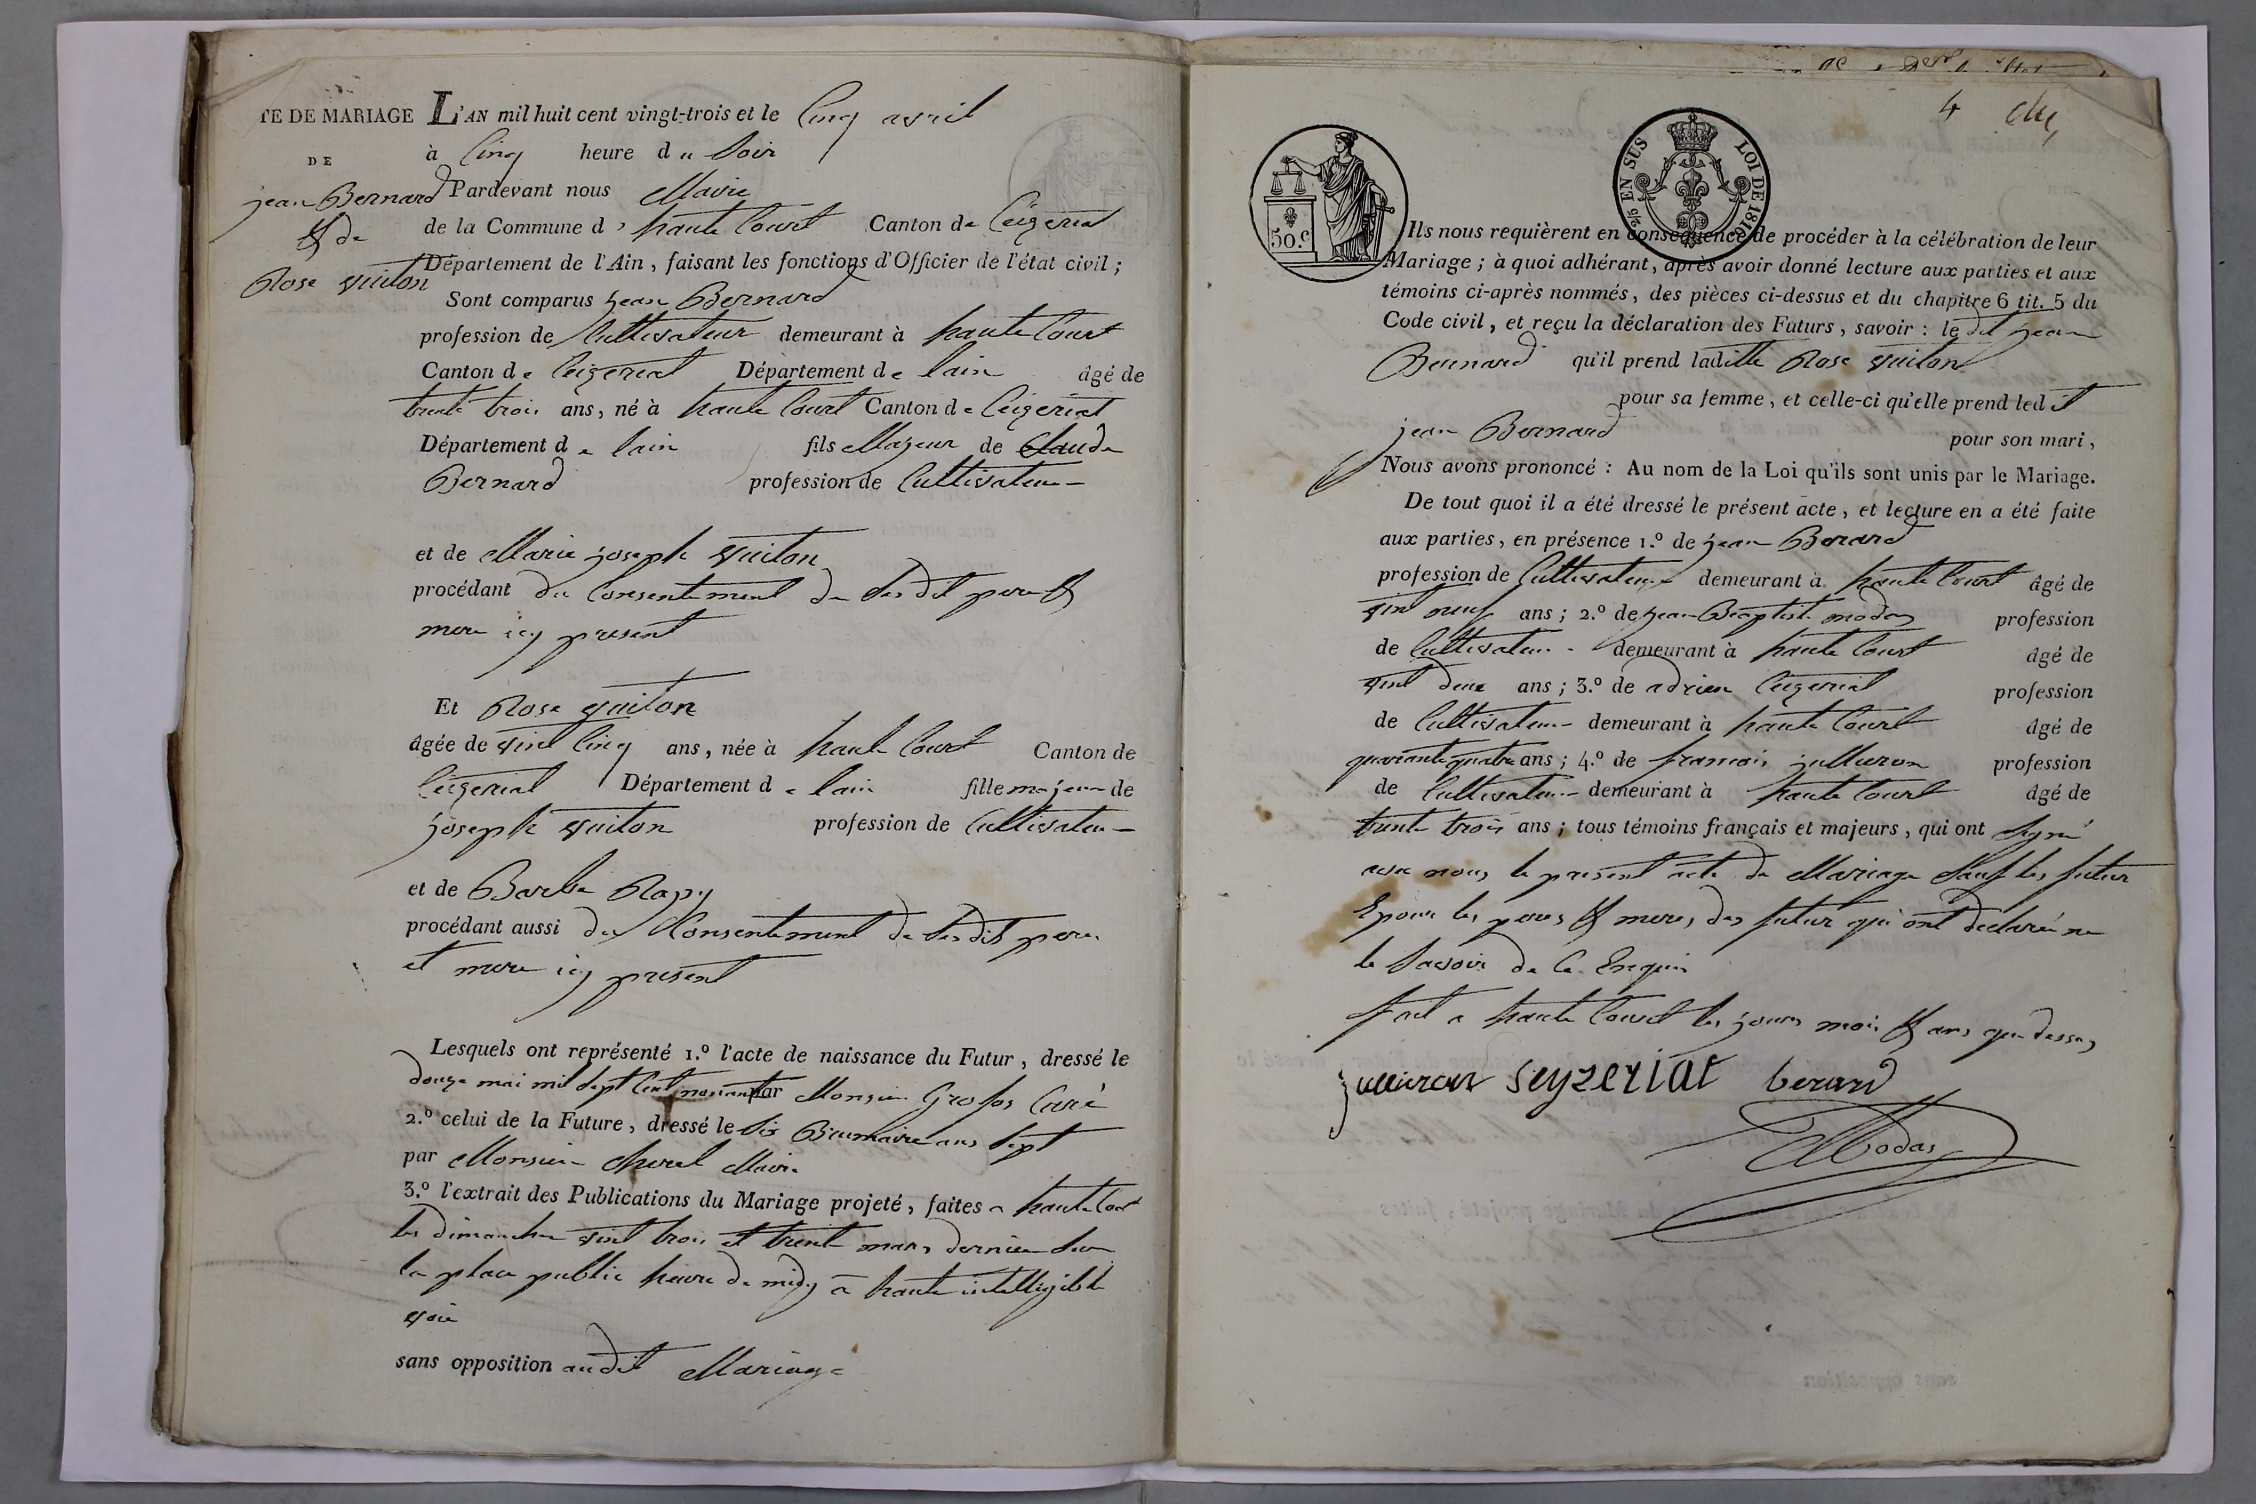 TE DE MARIAGE L'AN mil huit cent vingt-trois et le Cinq avril
DE
à Cinq heure du Soir
jean Bernard
Pardevant nous Maire
& de
de la Commune d'haute Court Canton de Ceizeriat
Rose vuiton
Département de l'Ain, faisant les fonctions d'Officier de l'état civil;
Sont comparus jean Bernard
profession de Cultivateur demeurant à haute Court
Canton de Ceizeriat Département de lain âgé de
trente trois ans, né à haute Court Canton de Ceizeriat
Département de lain fils Majeur de Claude
Bernard profession de Cultivateur
et de Marie joseph vuiton
procédant du Consentement de ses dit pere &
mere icy present
Et Rose vuiton
âgée de vint Cinq ans, née à haute Court Canton de
Ceizeriat Département de lain fille majeur de
joseph vuiton profession de Cultivateur
et de Barbe Rapy
procédant aussi du Consentement de ses dits pere
et mere icy present
Lesquels ont représenté 1.º l'acte de naissance du Futur, dressé le
douze mai mil sept Cent nonante par Monsieur Grosfos Curé
2.º celui de la Future, dressé le Six Brumaire ans sept
par Monsieur chevrel Maire
3.º l'extrait des Publications du Mariage projeté, faites a haute Court
les dimanche vint trois et trente mars dernier sur
la place public heure de midy a haute intelligible
voie
sans opposition audit Mariage
4
EN SUS LOI DE 1816
50.c
Ils nous requièrent en conséquence de procéder à la célébration de leur
Mariage; à quoi adhérant, après avoir donné lecture aux parties et aux
témoins ci-après nommés, des pièces ci-dessus et du chapitre 6 tit. 5 du
Code civil, et reçu la déclaration des Futurs, savoir: le dit jean
Bernard qu'il prend laditte Rose vuiton
pour sa femme, et celle-ci qu'elle prend ledit
jean Bernard pour son mari,
Nous avons prononcé: Au nom de la Loi qu'ils sont unis par le Mariage.
De tout quoi il a été dressé le présent acte, et lecture en a été faite
aux parties, en présence 1.º de jean Berard
profession de Cultivateur demeurant à haute Court âgé de
vint neuf ans; 2.º de jean Baptiste modas profession
de Cultivateur demeurant à haute Court âgé de
vint deux ans; 3.º de adrien Ceizeriat profession
de Cultivateur demeurant à haute Court âgé de
quarante quatre ans; 4.º de francois jullieron profession
de Cultivateur demeurant à haute Court âgé de
trente trois ans; tous témoins français et majeurs, qui ont signé
avec nous le present acte de Mariage Sauf les futur
Epoux les peres & meres des futur qui ont déclaré ne
le Savoir de Ce Enquis
fait a haute Court les jours mois & ans que dessus
jullieron seyzeriat berard
Modas